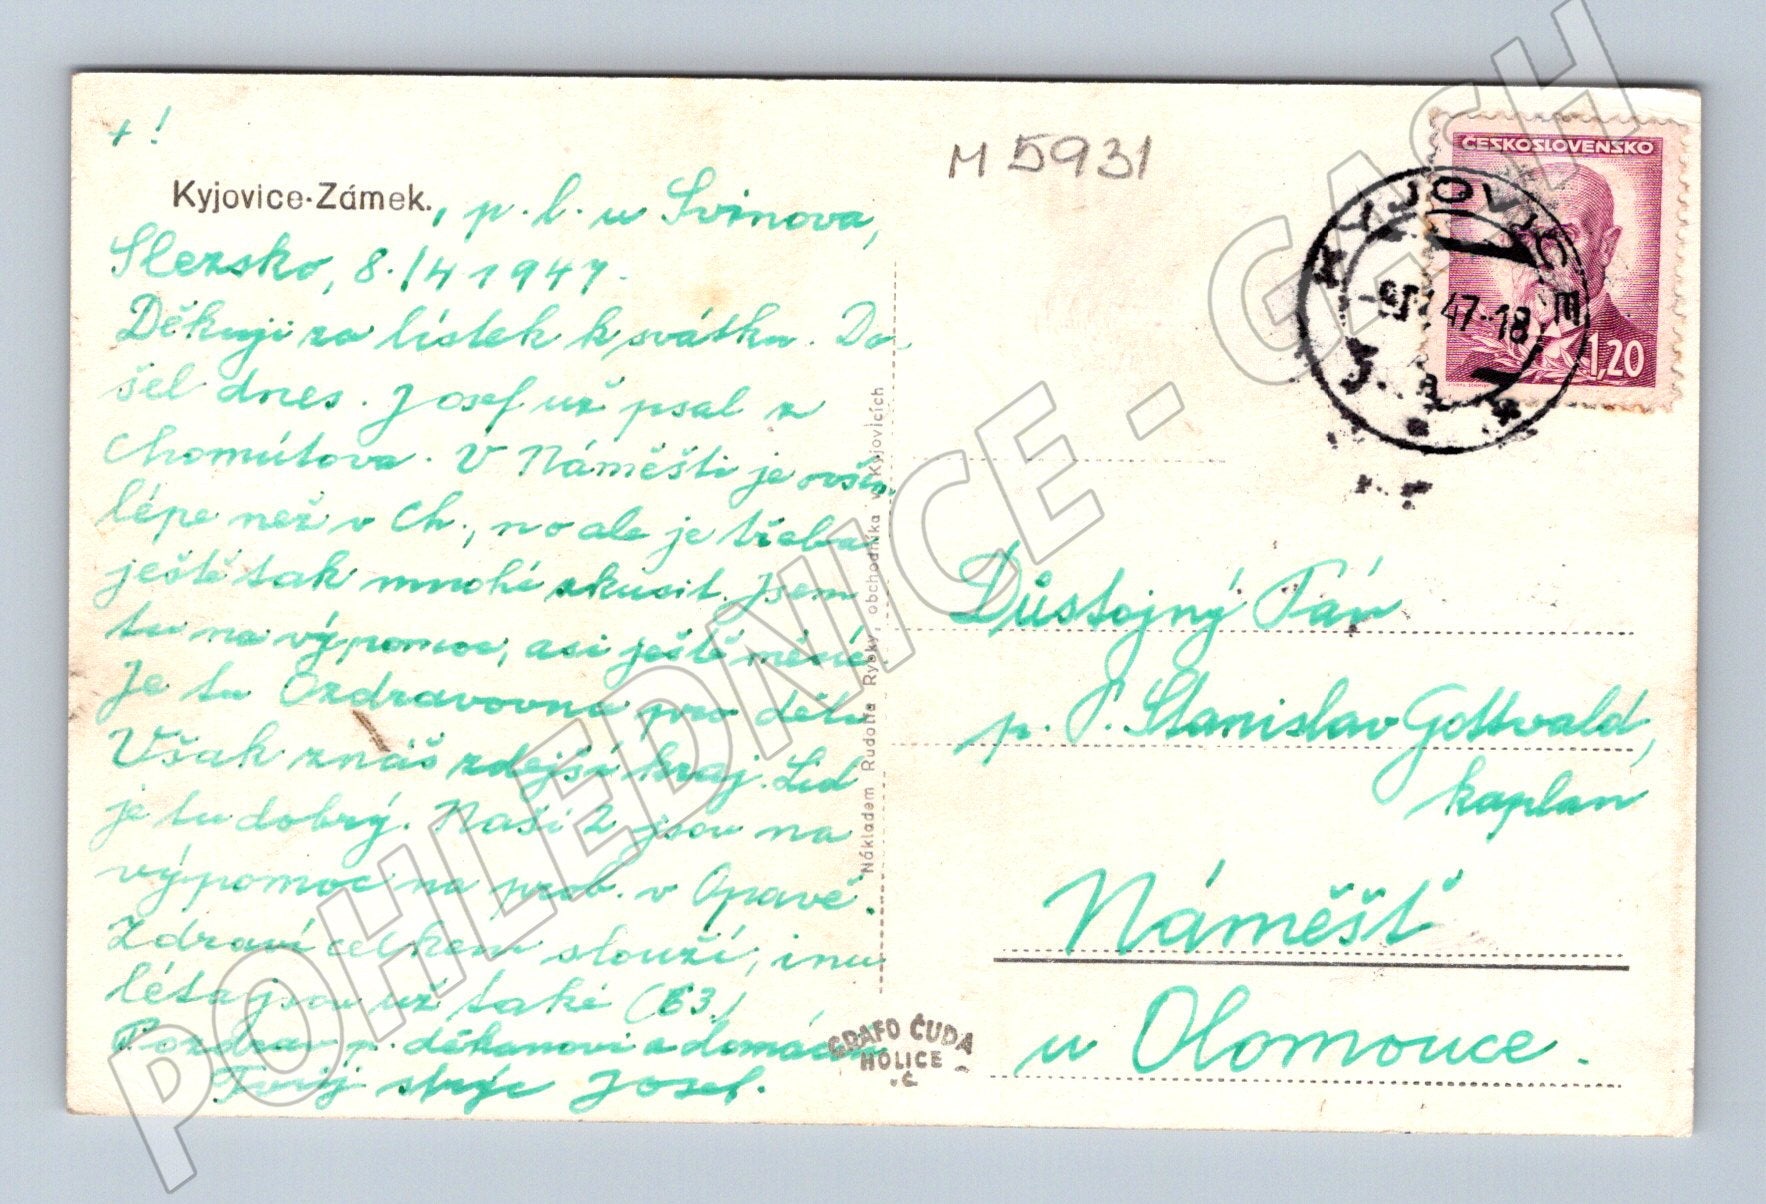 + !
M 5931
Kyjovice-Zámek., p. l. u Svinova,
Slezsko, 8./4 1947.
Děkuji za lístek k svátku. Do-
šel dnes. Josef už psal z
Chomútova. V Náměšti je ovšem
lépe než v Ch., no ale je třeba
ještě tak mnohé zkusit. Jsem
tu na výpomoc, asi ještě měsíc.
Je tu Ozdravovna pro děti.
Však znáš zdejší kraj. Lid
je tu dobrý. Naši 2 jsou na
výpomoc na prob. v Opavě.
Zdraví celkem slouží, inu
léta jsou už také (63)
Pozdrav p. děkanovi a domácím
Tvůj strýc Josef.
Nákladem Rudolfa Rybky, obchodníka v Kyjovicích
GRAFO ČUDA
HOLICE
Č
ČESKOSLOVENSKO
1,20
KYJOVICE
47-18
Důstojný Pán
p. P. Stanislav Gottvald,
kaplan
Náměšť
u Olomouce.
POHLEDNICE - GASH